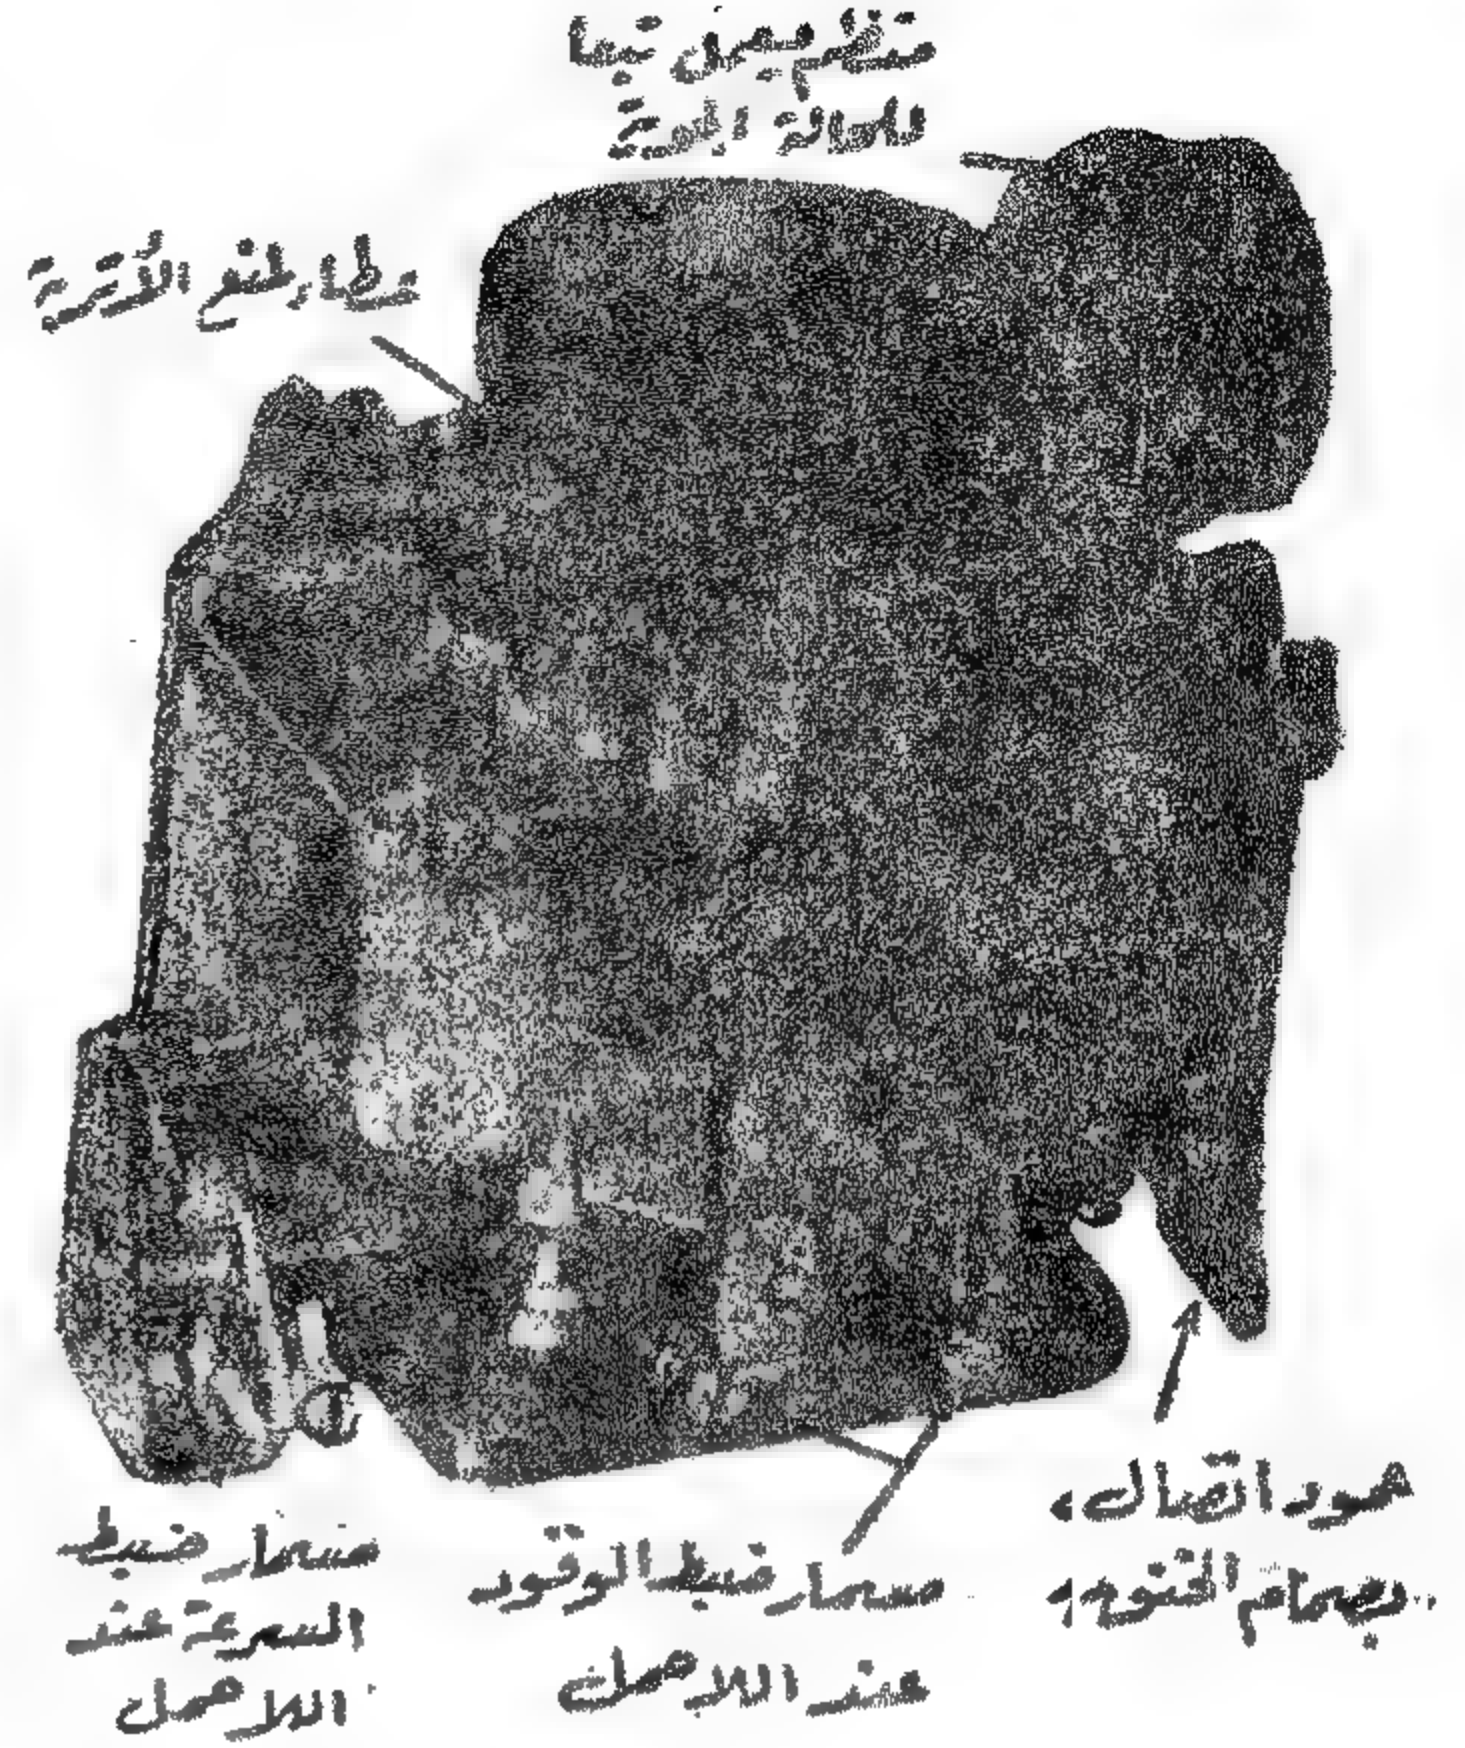 منظم يعمل تبعا
للحالة الجوية
غطاء لمنع الأتربة
عمود اتصال
بصمام الخنوق
مسمار ضبط الوقود
عند اللاحمل
مسمار ضبط
السرعة عند
اللاحمل